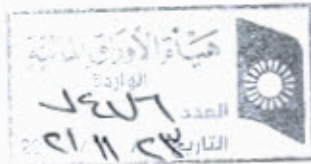 هيئة الأوراق المالية
الواردة
العدد
التاريخ ٢٣ ١١ ٢١